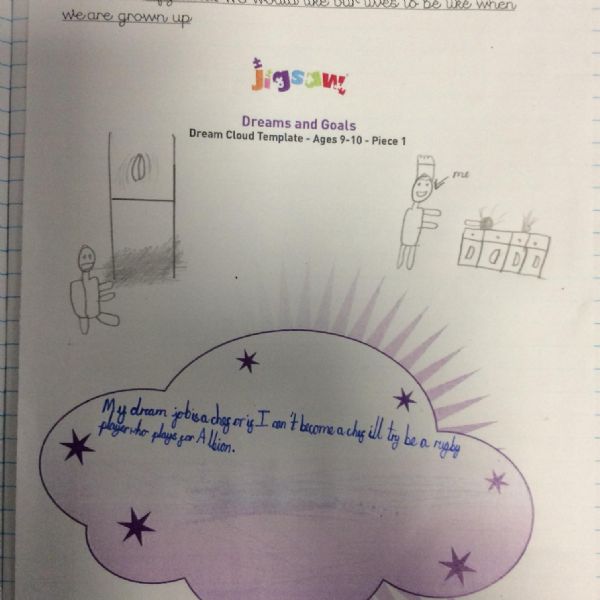 we would like our lives to be like when
we are grown up
jigsaw
Dreams and Goals
Dream Cloud Template - Ages 9-10 - Piece 1
me
My dream job is a chef or if I can't become a chef ill try be a rugby
player who plays for Albion.